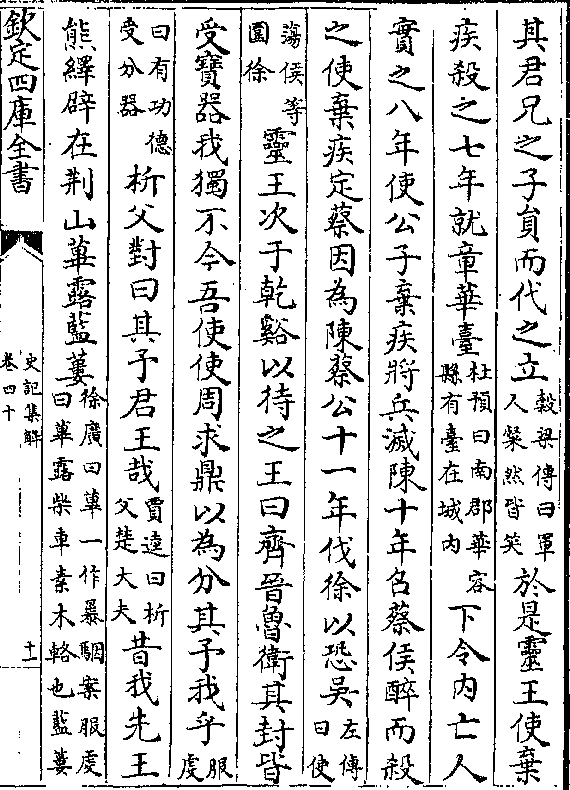 其君兄之子員而代之立穀梁傳曰軍人粲然皆笑於是靈王使棄
疾殺之七年就章華臺杜預曰南郡華容縣有臺在城内下令内亡人
實之八年使公子棄疾將兵滅陳十年名蔡侯醉而殺
之使棄疾定蔡因為陳蔡公十一年伐徐以恐吳左傳曰使
蕩侯等圍徐靈王次于乾谿以待之王曰齊晉魯衛其封皆
受寶器我獨不今吾使使周求鼎以為分其予我乎服虔
曰有功德受分器析父對曰其予君王哉賈逵曰析父楚大夫昔我先王
熊繹辟在荆山蓽露藍蔞徐廣曰蓽一作暴駰案服虔曰蓽露柴車素木輅也藍蔞
欽定四庫全書
史記集解
卷四十
十一